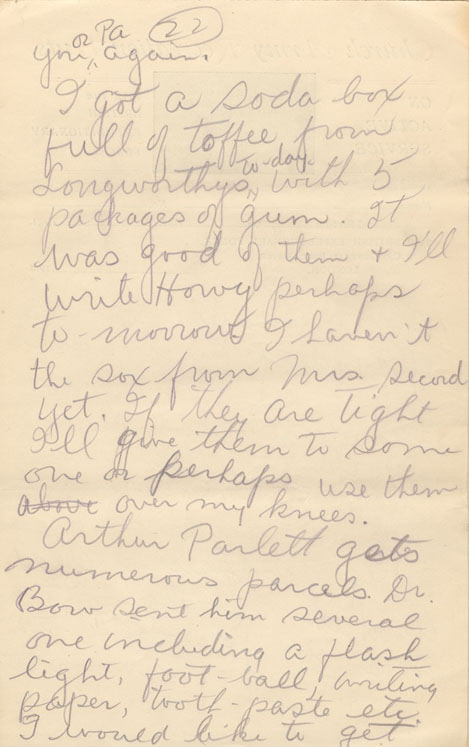 or Pa 22
you, again.
I got a soda box
full of toffee from
to-day
Longworthys, with 5
packages of gum. It
was good of them + I'll
write Howy perhaps
to-morrow. I haven't
the sox from Mrs. Secord
yet. If they are tight
I'll give them to some
one or perhaps use them
above over my knees.
Arthur Parlett gets
numerous parcels. Dr.
Bow sent him several
one including a flash
light, foot-ball, writing
paper, tooth-paste etc.
I would like to get